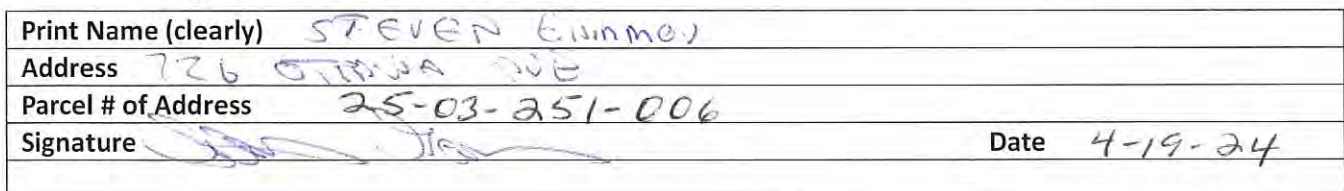 Print Name (clearly) STEVEN
Address 726 OTTAWA AVE
Parcel # of Address 25-03-251-006
Signature Date 4-19-24